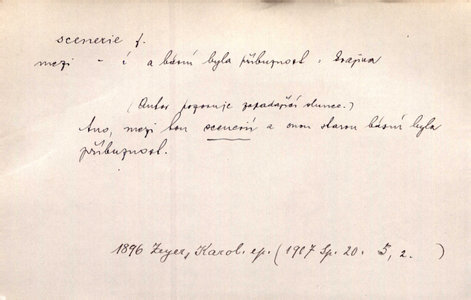 scenerie f.
mezi – í a básní byla příbuznost. krajina
(Autor pozoruje zapadající slunce.)
Ano, mezi tou scenerií a onou starou básní byla
příbuznost.
1896 Zeyer, Karol. ep. (1907 Sp. 20. 5, 2. )